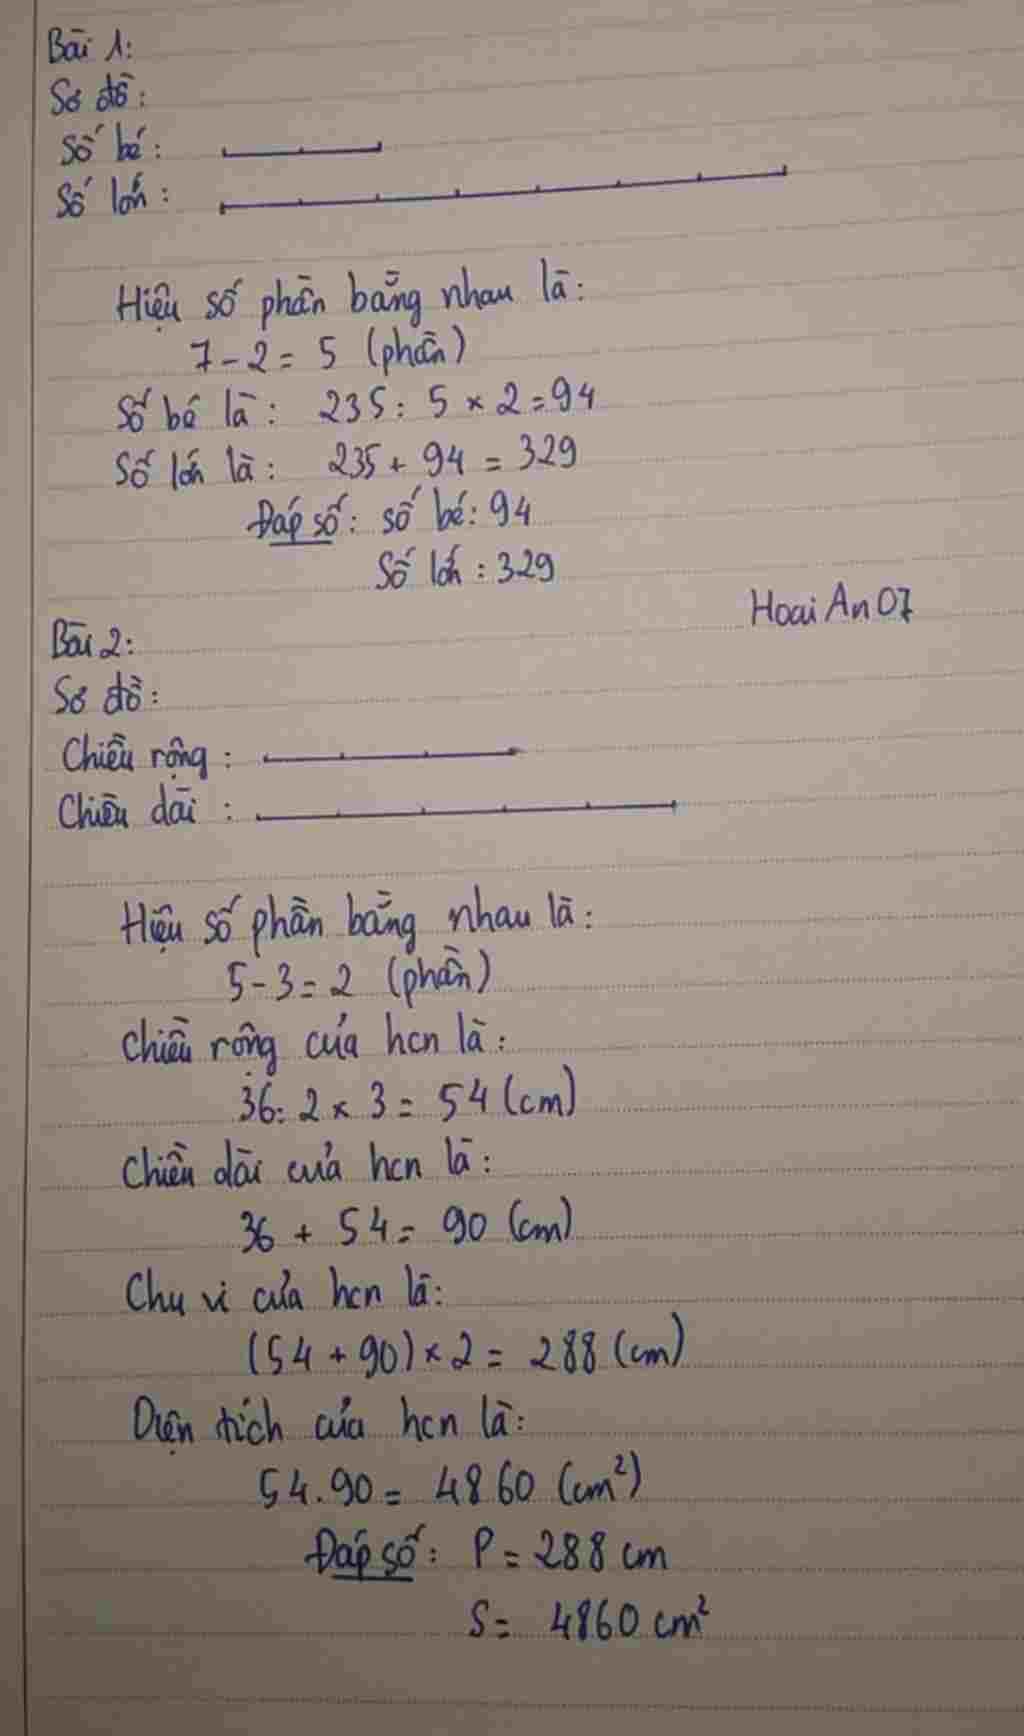 Bài 1:
Sơ đồ:
Số bé:
Số lớn:
Hiệu số phần bằng nhau là:
7 - 2 = 5 (phần)
Số bé là: 235 : 5 × 2 = 94
Số lớn là: 235 + 94 = 329
Đáp số: số bé: 94
Số lớn: 329
Hoai An 07
Bài 2:
Sơ đồ:
Chiều rộng:
Chiều dài:
Hiệu số phần bằng nhau là:
5 - 3 = 2 (phần)
Chiều rộng của hcn là:
36 : 2 × 3 = 54 (cm)
Chiều dài của hcn là:
36 + 54 = 90 (cm)
Chu vi của hcn là:
(54 + 90) × 2 = 288 (cm)
Diện tích của hcn là:
54 . 90 = 4860 (cm²)
Đáp số: P = 288 cm
S = 4860 cm²